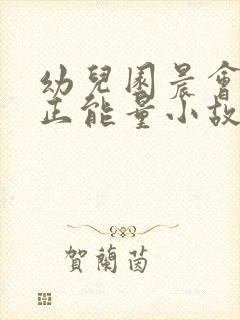 幼兒園晨會
正能量小故
賀蘭茵